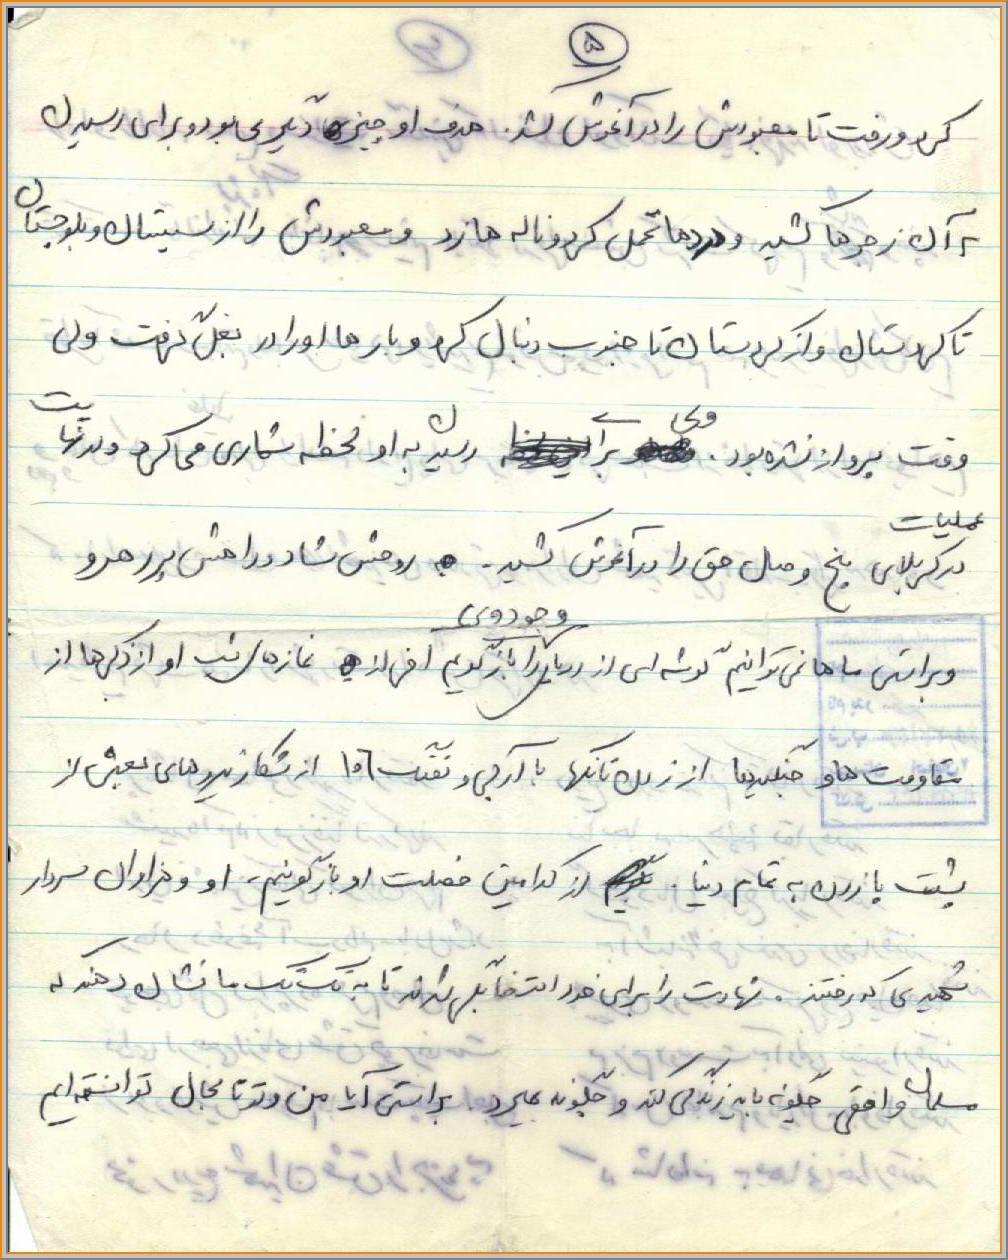 ۵
کرد و رفت تا معبودش را در آغوش کشد. هدف او چیز دیگری بود و برای رسیدن
به آن زجرها کشید و دردها تحمل کرد و ناله ها زد و معبودش را از سیستان و بلوچستان
تا کردستان و از کردستان تا جنوب دنبال کرد و بارها او را در بغل گرفت ولی
وقت پرواز نشده بود. ولی برای رسیدن به او لحظه شماری می کرد و در نهایت
در عملیات کربلای پنج وصال حق را در آغوش کشید. روحش شاد و راهش پر رهرو
و براستی ما ها نمی توانیم گوشه ای از دریای وجود وی را بازگویم از نمازهای شب او از ذکرها از
مقاومت ها و جنگیدنها از زدن تانکها با آرپی و تفنگ ۱۰۶ از شکار نیروهای بعثی از
پشت پا زدن به تمام دنیا. از کدامین خصلت او بازگوئیم، او و هزاران سردار
شهیدی که رفتند. شهادت را برای خود انتخاب کردند تا به تک تک ما نشان دهند که
مسلمان واقعی چگونه باید زندگی کند و چگونه بمیرد. براستی آیا من و تو تا بحال توانسته ایم